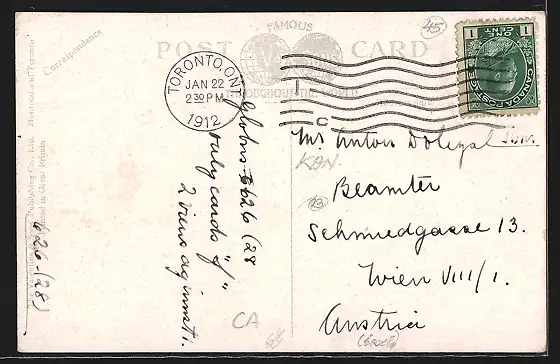 FAMOUS
POST CARD
THROUGHOUT THE WORLD
Correspondence
Publishing Co. Ltd. Montreal and Toronto
Printed in Great Britain
TORONTO, ONT.
JAN 22
2 30 PM
1912
C
1 1
ONE
CENT
CANADA POSTAGE
45
Globus 626 (28
only cards "of"
2 views against 1.
626-(28)
Mr Anton Dolezal
KAN
Beamter
Schmiedgasse 13.
Wien VIII/1.
Austria
CA